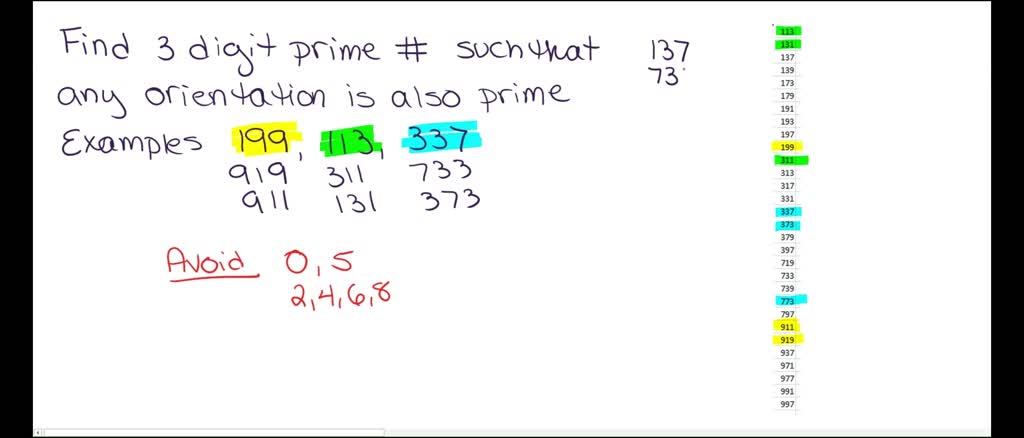 Find 3 digit prime # such that
any orientation is also prime
Examples 199, 113, 337
919 311 733
911 131 373
Avoid 0, 5
2, 4, 6, 8
137
73
113
131
137
139
173
179
191
193
197
199
311
313
317
331
337
373
379
397
719
733
739
773
797
911
919
937
971
977
991
997